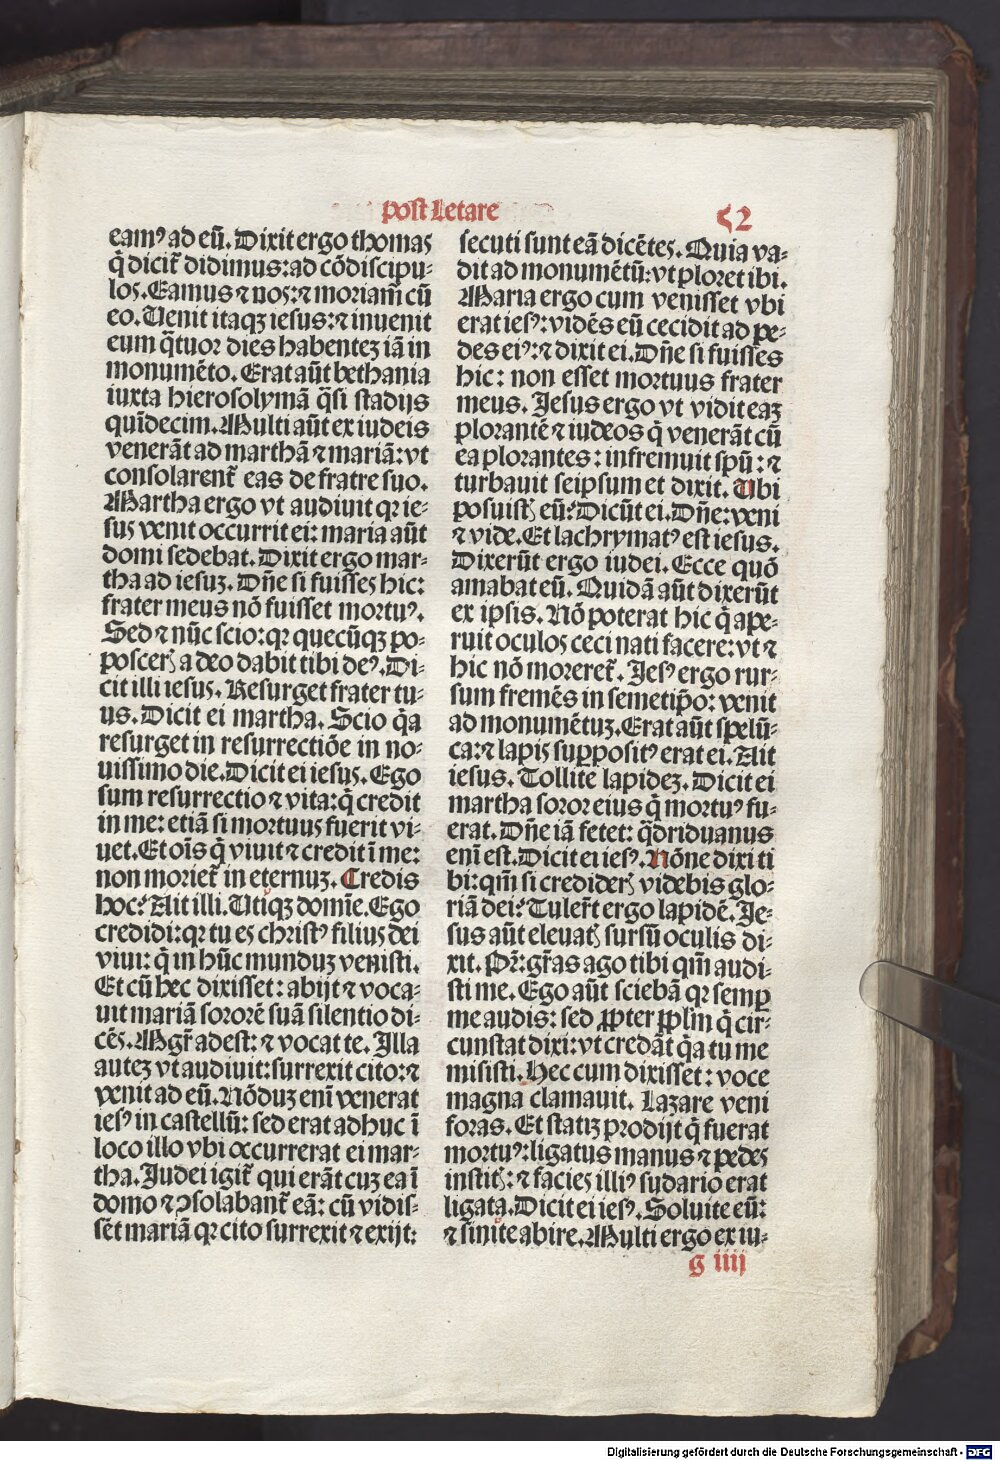 post Letare
52
eamꝰ ad eū. Dixit ergo thomas
q̄ dicit̄ didimus: ad cōdiscipu-
los. Eamus ⁊ nos: ⁊ moriam̄ cū
eo. Uenit itaqꝫ iesus: ⁊ inuenit
eum q̄tuor dies habentez iā in
monumēto. Erat aūt bethania
iuxta hierosolymā q̄si stadijs
quīdecim. Multi aūt ex iudeis
venerāt ad marthā ⁊ mariā: vt
consolarent̄ eas de fratre suo.
Martha ergo vt audiuit qꝛ ie-
sus venit occurrit ei: maria aūt
domi sedebat. Dixit ergo mar-
tha ad iesuz. Dn̄e si fuisses hic:
frater meus nō fuisset mortuꝰ.
Sed ⁊ nūc scio: qꝛ quecūqꝫ po-
posceꝝ a deo dabit tibi deꝰ. Di-
cit illi iesus. Resurget frater tu-
us. Dicit ei martha. Scio q̄a
resurget in resurrectiōe in no-
uissimo die. Dicit ei iesus. Ego
sum resurrectio ⁊ vita: q̄ credit
in me: etiā si mortuus fuerit vi-
uet. Et oīs q̄ viuit ⁊ credit ī me:
non moriet̄ in eternuz. Credis
hoc? Ait illi. Utiqꝫ domīe. Ego
credidi: qꝛ tu es christꝰ filius dei
viui: q̄ in hūc munduz venisti.
Et cū hec dixisset: abijt ⁊ voca-
uit mariā sororē suā silentio di-
cēs. Mgr̄ adest: ⁊ vocat te. Illa
autez vt audiuit: surrexit cito: ⁊
venit ad eū. Nōduz enī venerat
iesꝰ in castellū: sed erat adhuc ī
loco illo vbi occurrerat ei mar-
tha. Iudei igit̄ qui erāt cuz ea ī
domo ⁊ ꝯsolabant̄ eā: cū vidis-
sēt mariā qꝛ cito surrexit ⁊ exijt:
secuti sunt eā dicētes. Quia va-
dit ad monumētū: vt ploret ibi.
Maria ergo cum venisset vbi
erat iesꝰ: vidēs eū cecidit ad pe-
des eiꝰ: ⁊ dixit ei. Dn̄e si fuisses
hic: non esset mortuus frater
meus. Jesus ergo vt vidit eaz
plorantē ⁊ iudeos q̄ venerāt cū
ea plorantes: infremuit spū: ⁊
turbauit seipsum et dixit. Ubi
posuistꝭ eū? Dicūt ei. Dn̄e: veni
⁊ vide. Et lachrymatꝰ est iesus.
Dixerūt ergo iudei. Ecce quō
amabat eū. Quidā aūt dixerūt
ex ipsis. Nō poterat hic q̄ ape-
ruit oculos ceci nati facere: vt ⁊
hic nō moreret̄. Jesꝰ ergo rur-
sum fremēs in semetip̄o: venit
ad monumētuz. Erat aūt spelū-
ca: ⁊ lapis suꝑpositꝰ erat ei. Ait
iesus. Tollite lapidez. Dicit ei
martha soror eius q̄ mortuꝰ fu-
erat. Dn̄e iā fetet: q̄driduanus
enī est. Dicit ei iesꝰ. Nōne dixi ti
bi: qm̄ si credideꝝ videbis glo-
riā dei? Tuler̄t ergo lapidē. Je-
sus aūt eleuatꝭ sursū oculis di-
xit. Pr̄: gr̄as ago tibi qm̄ audi-
sti me. Ego aūt sciebā qꝛ semꝑ
me audis: sed ꝓpter ꝓplm̄ q̄ cir-
cunstat dixi: vt credāt q̄a tu me
misisti. Hec cum dixisset: voce
magna clamauit. Lazare veni
foras. Et statiz prodijt q̄ fuerat
mortuꝰ: ligatus manus ⁊ pedes
institꝭ: ⁊ facies illiꝰ sudario erat
ligata. Dicit ei iesꝰ. Soluite eū:
⁊ sinite abire. Multi ergo ex iu-
g iiij
Digitalisierung gefördert durch die Deutsche Forschungsgemeinschaft - DFG